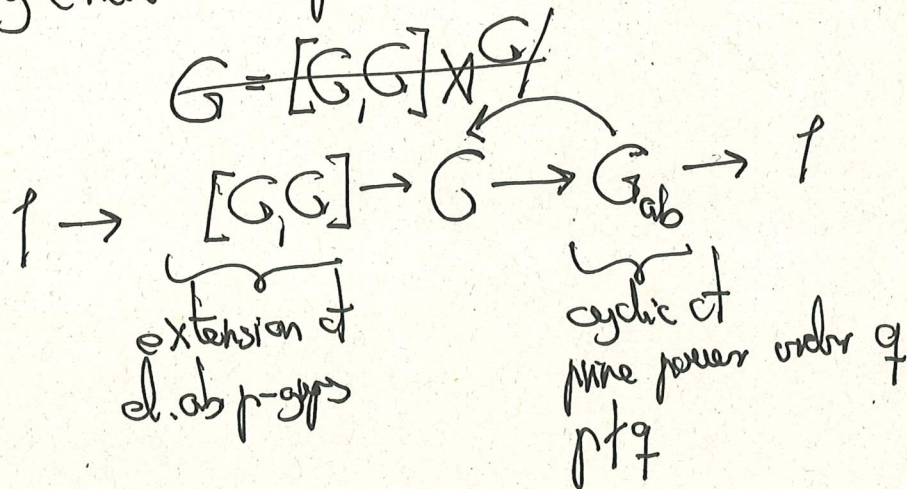 G = [G,G] ⋊ G/
1 → [G,G] → G → G_ab → 1
extension of
el. ab p-gps
cyclic of
prime power order q
p∤q